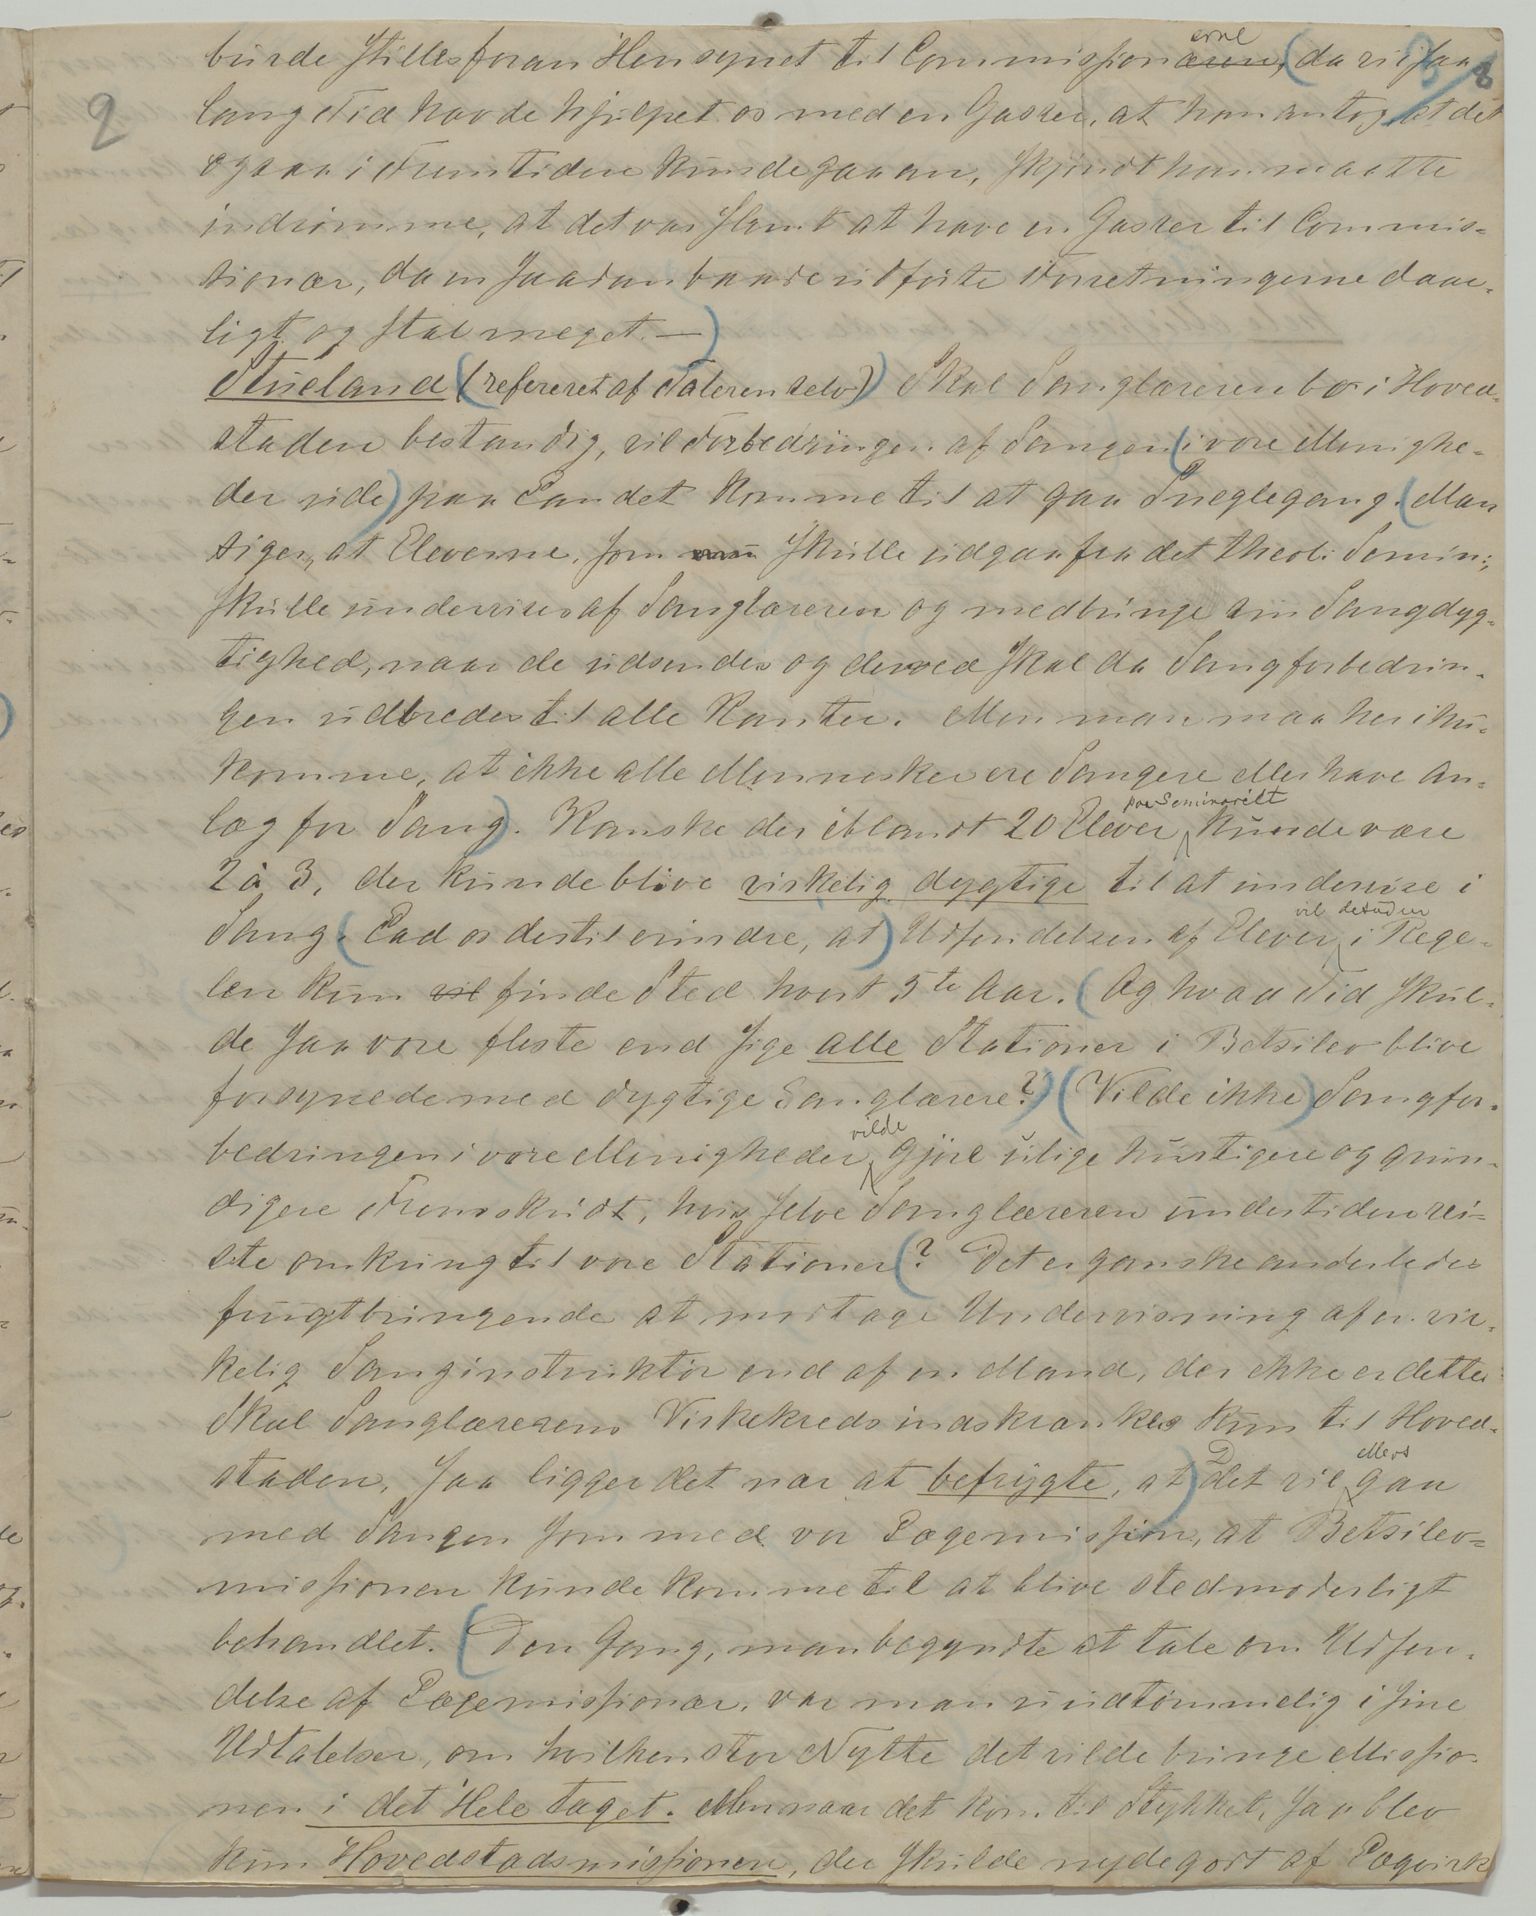 burde stilles foran Hensynet til Commissionæren, erne (da vi i saa 8
2 lang Tid havde hjulpet os med en Gasser, at han antog, at det
ogsaa i Fremtiden kunde gaa an, skjøndt han maatte
indrømme, at det var slemt at have en Gasser til Commis-
sionær, da en saadan baade udførte Forretningerne daar-
ligt og stal meget. —)
Stueland (refereret af Taleren selv) Skal Sanglæreren bo i Hoved-
staden bestandig, vil Forbedringen af Sangen (i vore Menighe-
der ude) paa Landet komme til at gaa Sneglegang. (Man
siger, at Eleverne, som skulle udgaa fra det theol. Semin:,
skulle undervises af Sanglæreren og medbringe sin Sangdyg-
tighed, naar de udsendes og derved skal da Sangforbedrin-
gen udbredes til alle Kanter. Men man maa her ihu-
komme, at ikke alle Mennesker ere Sangere eller have An-
læg for Sang). Kanske der iblandt 20 Elever paa Seminariet kunde være
2 à 3, der kunde blive virkelig dygtige til at undervise i
Sang. (Lad os dertil erindre, at) Udsendelsen af Elever vil desuden i Rege-
len kun vil finde Sted hvert 5te Aar. (Og hvad Tid skul-
de saa vore fleste end sige alle Stationer i Betsileo blive
forsynede med dygtige Sanglærere?) (Vilde ikke) Sangfor-
bedringen i vore Menigheder vilde gjøre ulige hurtigere og grun-
digere Fremskridt, hvis selve Sanglæreren undertiden rei-
ste omkring til vore Stationer (? Det er ganske anderledes
frugtbringende at modtage Undervisning af en vir-
kelig Sanginstruktør end af en Mand, der ikke er dette.
Skal Sanglærerens Virkekreds indskrænkes kun til Hoved-
staden, saa ligger det nær at befrygte, at) Det vil ellers gaa
med Sangen som med vor Lægemission, at Betsileo-
missionen kunde komme til at blive stedmoderligt
behandlet. (Den Gang, man begyndte at tale om Udsen-
delse af Lægemissionær, var man uudtømmelig i sine
Udtalelser, om hvilken stor Nytte det vilde bringe Missio-
nen i det Hele taget. Men naar det kom til Stykket, saa blev
kun Hovedstadsmissionen, der skulde nyde godt af Lægvirk